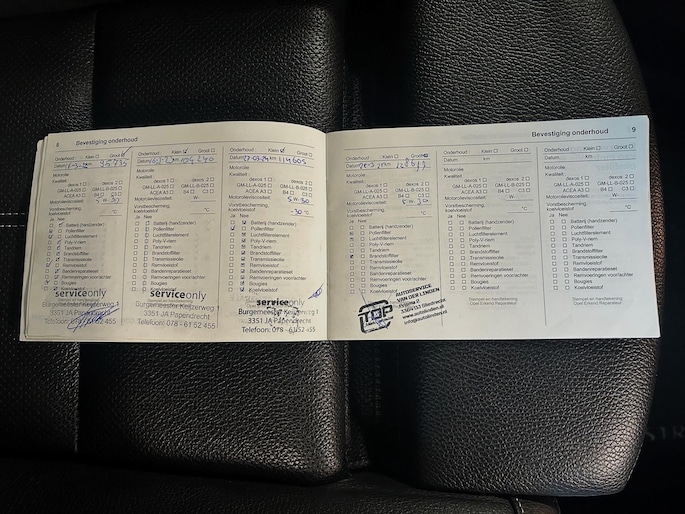 8 Bevestiging onderhoud
Onderhoud : Klein Groot
Datum km 95735
Motorolie
Kwaliteit:
dexos 1 dexos 2
GM-LL-A-025 GM-LL-B-025
ACEA A3 B4 C3
Motorolieviscositeit: 5 W- 30
Vorstbescherming
koelvloeistof °C
Ja Nee
Batterij (handzender)
Pollenfilter
Luchtfilterelement
Poly-V-riem
Tandriem
Brandstoffilter
Transmissieolie
Remvloeistof
Bandenreparatieset
Remvoeringen voor/achter
Bougies
Koelvloeistof
serviceonly
Burgemeester Keijzerweg 1
3351 JA Papendrecht
Telefoon: 078 - 61 52 455
Onderhoud : Klein Groot
Datum km 104240
Motorolie
Kwaliteit:
dexos 1 dexos 2
GM-LL-A-025 GM-LL-B-025
ACEA A3 B4 C3
Motorolieviscositeit: 5 W- 30
Vorstbescherming
koelvloeistof °C
Ja Nee
Batterij (handzender)
Pollenfilter
Luchtfilterelement
Poly-V-riem
Tandriem
Brandstoffilter
Transmissieolie
Remvloeistof
Bandenreparatieset
Remvoeringen voor/achter
Bougies
Koelvloeistof
serviceonly
Burgemeester Keijzerweg 1
3351 JA Papendrecht
Telefoon: 078 - 61 52 455
Onderhoud : Klein Groot
Datum km 114605
Motorolie
Kwaliteit:
dexos 1 dexos 2
GM-LL-A-025 GM-LL-B-025
ACEA A3 B4 C3
Motorolieviscositeit: 5 W- 30
Vorstbescherming
koelvloeistof -30 °C
Ja Nee
Batterij (handzender)
Pollenfilter
Luchtfilterelement
Poly-V-riem
Tandriem
Brandstoffilter
Transmissieolie
Remvloeistof
Bandenreparatieset
Remvoeringen voor/achter
Bougies
Koelvloeistof
serviceonly
Burgemeester Keijzerweg 1
3351 JA Papendrecht
Telefoon: 078 - 61 52 455
Bevestiging onderhoud 9
Onderhoud : Klein Groot
Datum km
Motorolie
Kwaliteit:
dexos 1 dexos 2
GM-LL-A-025 GM-LL-B-025
ACEA A3 B4 C3
Motorolieviscositeit: 5 W- 30
Vorstbescherming
koelvloeistof °C
Ja Nee
Batterij (handzender)
Pollenfilter
Luchtfilterelement
Poly-V-riem
Tandriem
Brandstoffilter
Transmissieolie
Remvloeistof
Bandenreparatieset
Remvoeringen voor/achter
Bougies
Koelvloeistof
TOP
AUTOSERVICE
VAN DER LINDEN
Onderhoud : Klein Groot
Datum km
Motorolie
Kwaliteit:
dexos 1 dexos 2
GM-LL-A-025 GM-LL-B-025
ACEA A3 B4 C3
Motorolieviscositeit: W-
Vorstbescherming
koelvloeistof °C
Ja Nee
Batterij (handzender)
Pollenfilter
Luchtfilterelement
Poly-V-riem
Tandriem
Brandstoffilter
Transmissieolie
Remvloeistof
Bandenreparatieset
Remvoeringen voor/achter
Bougies
Koelvloeistof
Stempel en handtekening
Opel Erkend Reparateur
Onderhoud : Klein Groot
Datum km
Motorolie
Kwaliteit:
dexos 1 dexos 2
GM-LL-A-025 GM-LL-B-025
ACEA A3 B4 C3
Motorolieviscositeit: W-
Vorstbescherming
koelvloeistof °C
Ja Nee
Batterij (handzender)
Pollenfilter
Luchtfilterelement
Poly-V-riem
Tandriem
Brandstoffilter
Transmissieolie
Remvloeistof
Bandenreparatieset
Remvoeringen voor/achter
Bougies
Koelvloeistof
Stempel en handtekening
Opel Erkend Reparateur